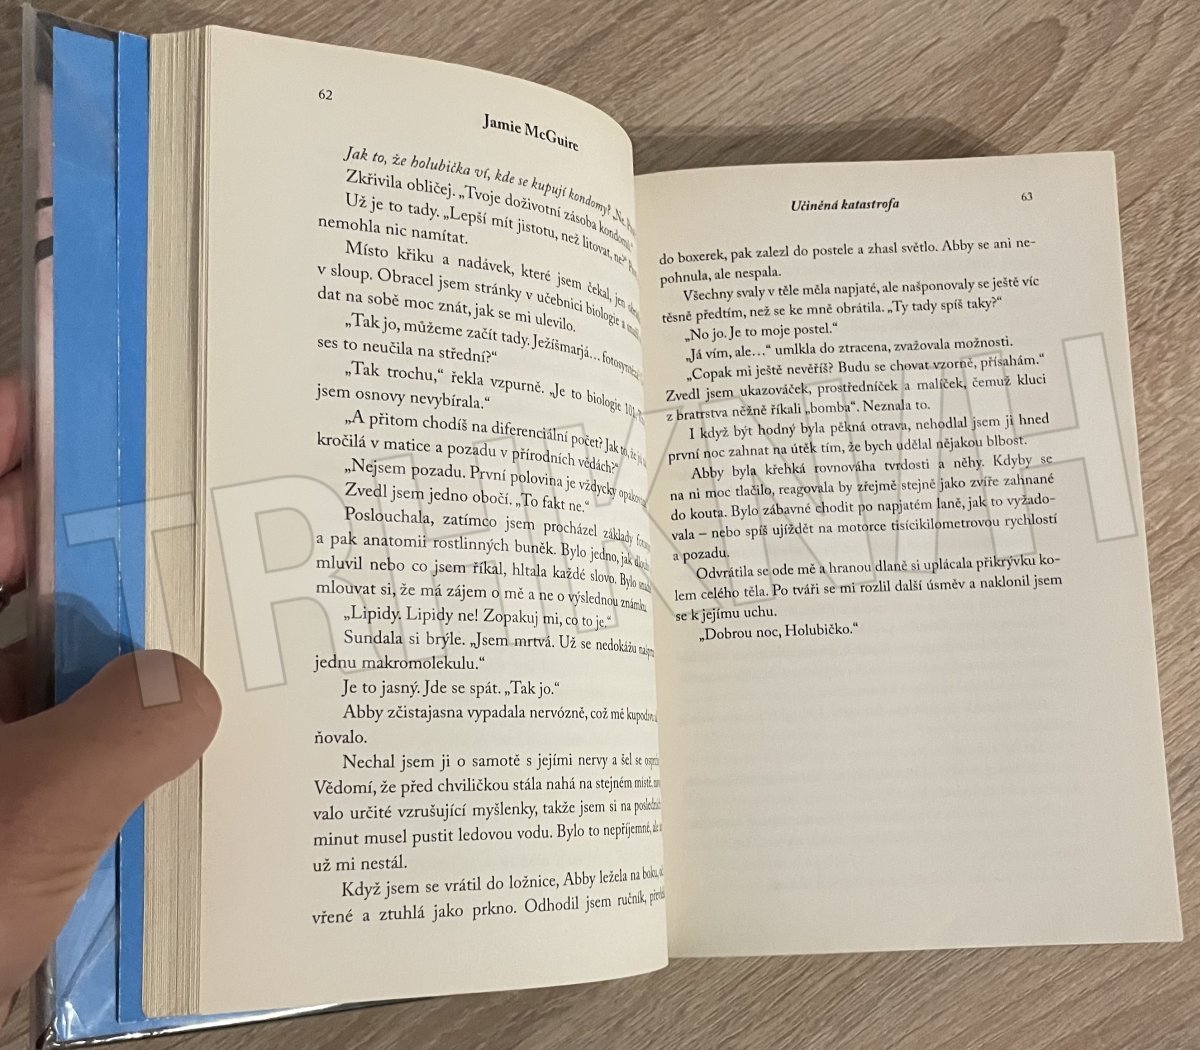 62
Jamie McGuire
Jak to, že holubička ví, kde se kupují kondomy? „Ne,
Zkřivila obličej. „Tvoje doživotní zásoba kondomů.“
Už je to tady. „Lepší mít jistotu, než litovat, ne?“
nemohla nic namítat.
Místo křiku a nadávek, které jsem čekal, jen
v sloup. Obracel jsem stránky v učebnici biologie a
dat na sobě moc znát, jak se mi ulevilo.
„Tak jo, můžeme začít tady. Ježíšmarjá… fotosyntéza?
ses to neučila na střední?“
„Tak trochu,“ řekla vzpurně. „Je to biologie 101,
jsem osnovy nevybírala.“
„A přitom chodíš na diferenciální počet? Jak to, že
kročilá v matice a pozadu v přírodních vědách?“
„Nejsem pozadu. První polovina je vždycky
Zvedl jsem jedno obočí. „To fakt ne.“
Poslouchala, zatímco jsem procházel základy
a pak anatomii rostlinných buněk. Bylo jedno, jak dlouho
mluvil nebo co jsem říkal, hltala každé slovo. Bylo
mlouvat si, že má zájem o mě a ne o výslednou známku.
„Lipidy. Lipidy ne! Zopakuj mi, co to je.“
Sundala si brýle. „Jsem mrtvá. Už se nedokážu
jednu makromolekulu.“
Je to jasný. Jde se spát. „Tak jo.“
Abby zčistajasna vypadala nervózně, což mě
ňovalo.
Nechal jsem ji o samotě s jejími nervy a šel se
Vědomí, že před chviličkou stála nahá na stejném místě,
valo určité vzrušující myšlenky, takže jsem si na posledních
minut musel pustit ledovou vodu. Bylo to nepříjemné, ale
už mi nestál.
Když jsem se vrátil do ložnice, Abby ležela na boku,
vřené a ztuhlá jako prkno. Odhodil jsem ručník,
Učiněná katastrofa
63
do boxerek, pak zalezl do postele a zhasl světlo. Abby se ani ne-
pohnula, ale nespala.
Všechny svaly v těle měla napjaté, ale našponovaly se ještě víc
těsně předtím, než se ke mně obrátila. „Ty tady spíš taky?“
„No jo. Je to moje postel.“
„Já vím, ale…“ umlkla do ztracena, zvažovala možnosti.
„Copak mi ještě nevěříš? Budu se chovat vzorně, přísahám.“
Zvedl jsem ukazováček, prostředníček a malíček, čemuž kluci
z bratrstva něžně říkali „bomba“. Neznala to.
I když být hodný byla pěkná otrava, nehodlal jsem ji hned
první noc zahnat na útěk tím, že bych udělal nějakou blbost.
Abby byla křehká rovnováha tvrdosti a něhy. Kdyby se
na ni moc tlačilo, reagovala by zřejmě stejně jako zvíře zahnané
do kouta. Bylo zábavné chodit po napjatém laně, jak to vyžado-
vala – nebo spíš ujíždět na motorce tisícikilometrovou rychlostí
a pozadu.
Odvrátila se ode mě a hranou dlaně si uplácala přikrývku ko-
lem celého těla. Po tváři se mi rozlil další úsměv a naklonil jsem
se k jejímu uchu.
„Dobrou noc, Holubičko.“